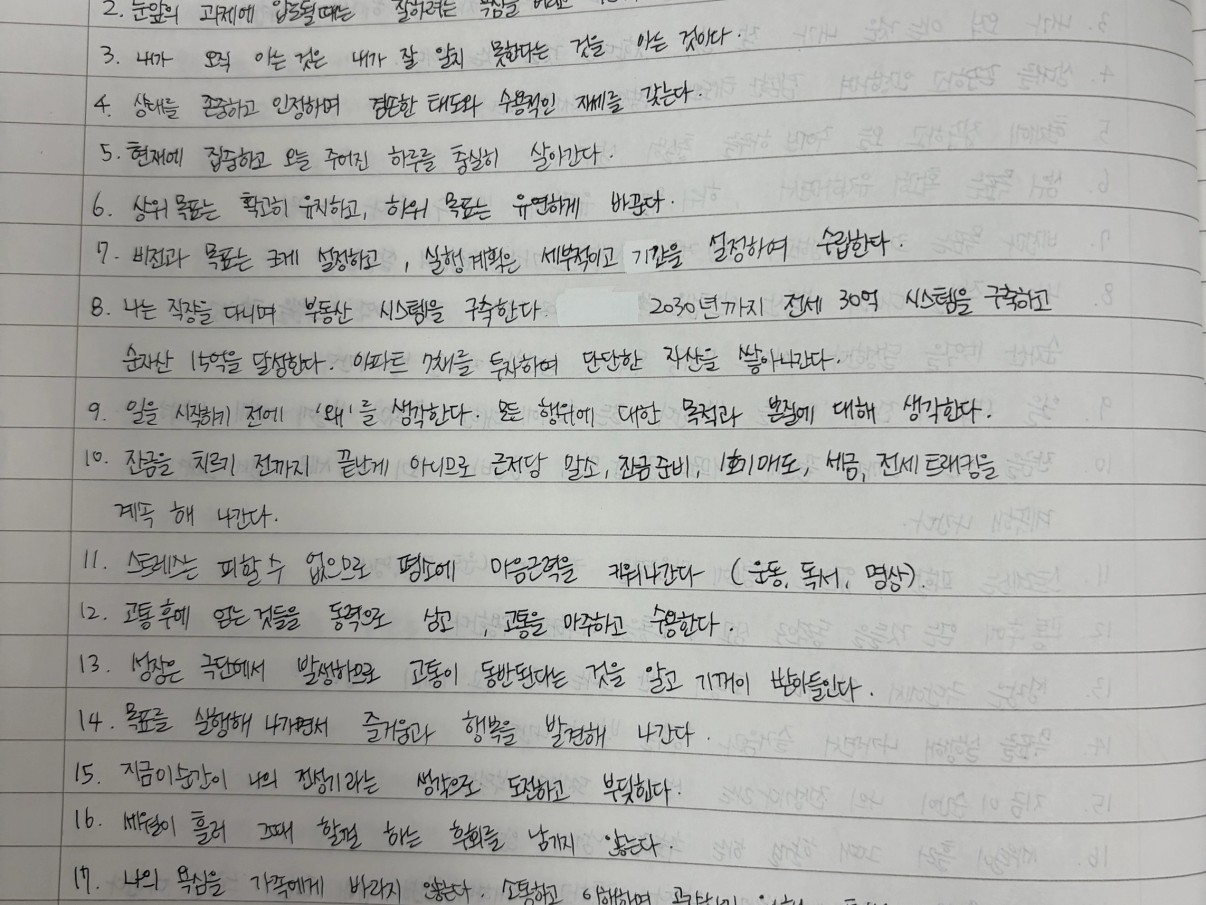 2. 눈앞의 과제에 압도될때는 잘하려는 욕심을 버리고
3. 내가 오직 아는 것은 내가 잘 알지 못한다는 것을 아는 것이다.
4. 상태를 존중하고 인정하며 겸손한 태도와 수용적인 자세를 갖는다.
5. 현재에 집중하고 오늘 주어진 하루를 충실히 살아간다.
6. 상위 목표는 확고히 유지하고, 하위 목표는 유연하게 바꾼다.
7. 비전과 목표는 크게 설정하고, 실행계획은 세부적이고 기간을 설정하여 수립한다.
8. 나는 직장을 다니며 부동산 시스템을 구축한다. 2030년까지 전세 30억 시스템을 구축하고
순자산 15억을 달성한다. 아파트 7채를 투자하여 단단한 자산을 쌓아나간다.
9. 일을 시작하기 전에 '왜'를 생각한다. 모든 행위에 대한 목적과 본질에 대해 생각한다.
10. 잔금을 치르기 전까지 끝난게 아니므로 근저당 말소, 잔금준비, 1호기매도, 세금, 전세트래킹을
계속 해 나간다.
11. 스트레스는 피할수 없으므로 평소에 마음근력을 키워나간다 (운동, 독서, 명상).
12. 고통후에 얻는것들을 동력으로 삼고, 고통을 마주하고 수용한다.
13. 성장은 극단에서 발생하므로 고통이 동반된다는 것을 알고 기꺼이 받아들인다.
14. 목표를 실행해 나가면서 즐거움과 행복을 발견해 나간다.
15. 지금이순간이 나의 전성기라는 생각으로 도전하고 부딪힌다.
16. 세월이 흘러 그때 할걸 하는 후회를 남기지 않는다.
17. 나의 욕심을 가족에게 바라지 않는다. 소통하고 이해하며